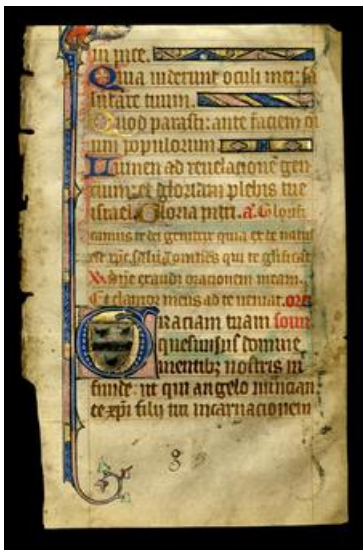 in pace.
Quia viderunt oculi mei: sa
lutare tuum.
Quod parasti: ante faciem o
um populorum
Lumen ad revelacionē gen
cium: et gloriam plebis tue
israel. Gloria patri. a. Glorifi
camus te dei genitrix quia ex te natus
est xp̄c. salva omnes qui te glificāt
exaudi oracionem meam.
Et clamor meus ad te veniat. 
Graciam tuam
quesumus domine
mentibz nostris in
funde: ut qui angelo nuncian
te xp̄i filii tui incarnacionem